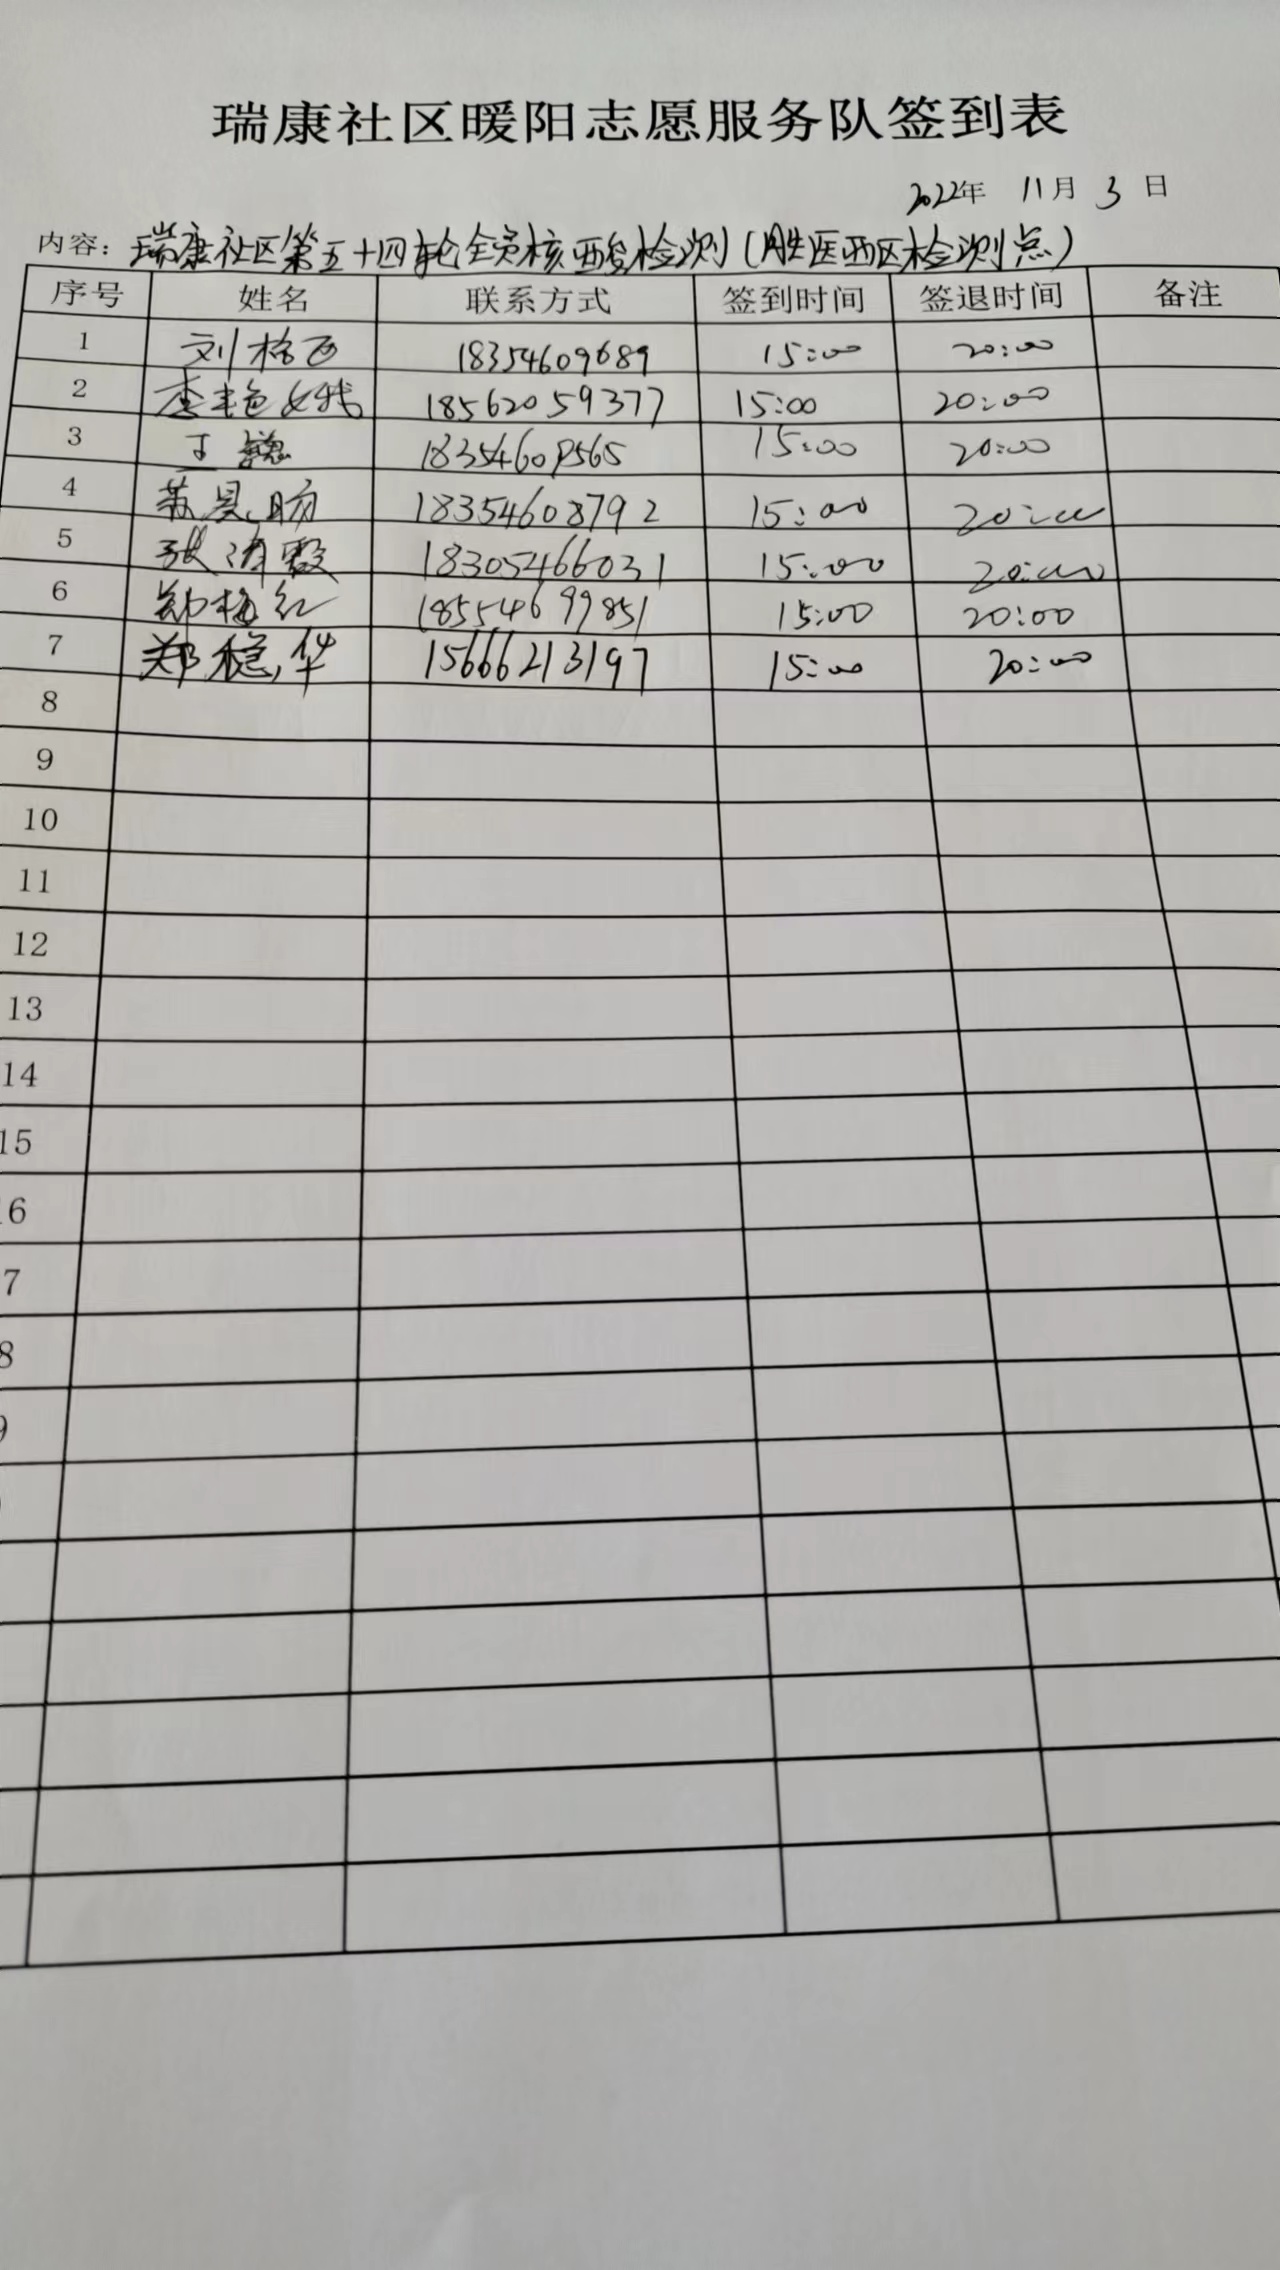 瑞康社区暖阳志愿服务队签到表
2022年 11月 3日
内容：瑞康社区第五十四轮全员核酸检测（胜医西区检测点）
序号 姓名 联系方式 签到时间 签退时间 备注
1 刘格西 18354609689 15:00 20:00
2 李艳 18562059377 15:00 20:00
3 王 18354609565 15:00 20:00
4 18354608792 15:00 20:00
5 张清 18305466031 15:00 20:00
6 郑梅红 18554699851 15:00 20:00
7 郑稳华 15666213197 15:00 20:00
8
9
10
11
12
13
14
15
16
7
8
9